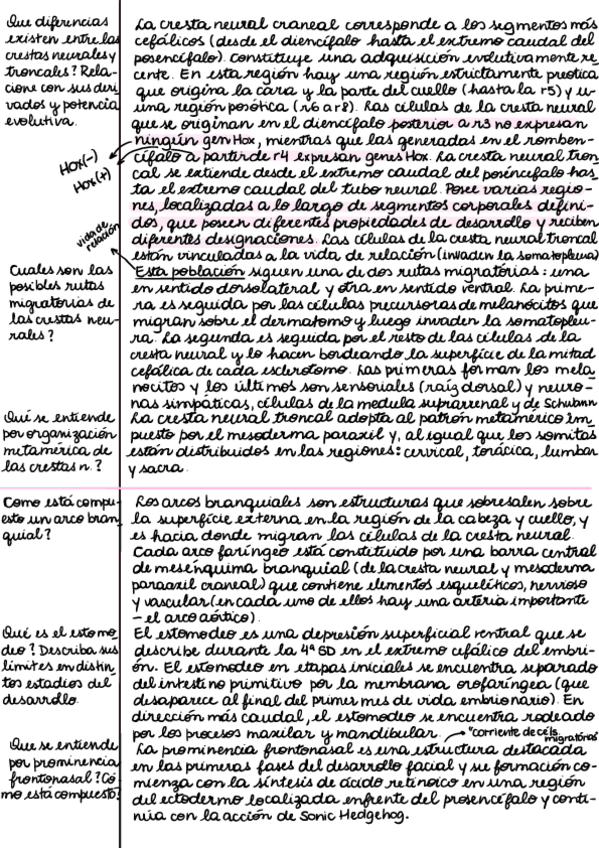 Que diferencias
existen entre las
crestas neurales y
troncales? Rela-
cione con sus deri
vados y potencia
evolutiva.
La cresta neural craneal corresponde a los segmentos más
cefálicos (desde el diencéfalo hasta el extremo caudal del
posencéfalo). Constituye una adquisición evolutivamente re
cente. En esta región hay una región estrictamente preotica
que origina la cara y la parte del cuello (hasta la r5) y u-
una región posótica (r6 a r8). Las células de la cresta neural
que se originan en el diencéfalo posterior a r3 no expresan
ningún gen Hox, mientras que las generadas en el romben-
cífalo a partir de r4 expresan genes Hox. La cresta neural tron
cal se extiende desde el extremo caudal del posencéfalo has
ta el extremo caudal del tubo neural. Posee varias regio-
nes, localizadas a lo largo de segmentos corporales defini-
dos, que poseen diferentes propiedades de desarrollo y reciben
diferentes designaciones. Las células de la cresta neural troncal
están vinculadas a la vida de relación (invaden la somatopleura)
Esta población siguen una de dos rutas migratorias: una
en sentido dorsolateral y otra en sentido ventral. La prime-
ra es seguida por las células precursoras de melanócitos que
migran sobre el dermatomo y luego invaden la somatopleu-
ra. La segunda es seguida por el resto de las células de la
cresta neural y lo hacen bordeando la superfície de la mitad
cefálica de cada esclerotomo. Las primeras forman los mela
nocitos y los últimos son sensoriales (raíz dorsal) y neuro-
nas simpáticas, células de la medula suprarrenal y de Schwann
Hox(-)
Hox(+)
vida de
relación
Cuales son las
posibles rutas
migratorias de
las crestas neu-
rales?
Qué se entiende
por organización
metamérica de
las crestas n.?
La cresta neural troncal adopta al patrón metamérico im
puesto por el mesoderma paraxil y, al igual que los somitas
están distribuidos en las regiones: cervical, torácica, lumbar
y sacra.
Como está compu-
esto un arco bran
quial?
Los arcos branquiales son estructuras que sobresalen sobre
la superfície externa en la región de la cabeza y cuello, y
es hacia donde migran las células de la cresta neural.
Cada arco faríngeo está constituido por una barra central
de mesénquima branquial (de la cresta neural y mesoderma
paraaxil craneal) que contiene elementos esqueléticos, nervioso
y vascular (en cada uno de ellos hay una arteria importante
– el arco aórtico).
Qué es el estomo
deo? Describa sus
límites en distin-
tos estadios del
desarrollo.
El estomodeo es una depresión superficial ventral que se
describe durante la 4ª SD en el extremo cefálico del embri-
ón. El estomodeo en etapas iniciales se encuentra separado
del intestino primitivo por la membrana orofaríngea (que
desaparece al final del primer mes de vida embrionario). En
dirección más caudal, el estomodeo se encuentra rodeado
por los procesos maxilar y mandibular.
"corriente de céls.
migratórias
Que se entiende
por prominencia
frontonasal? Có
mo está compuesto?
La prominencia frontonasal es una estructura destacada
en las primeras fases del desarrollo facial y su formación co-
mienza con la síntesis de ácido retinoico en una región
del ectodermo localizada enfrente del prosencéfalo y conti-
núa con la acción de Sonic Hedgehog.